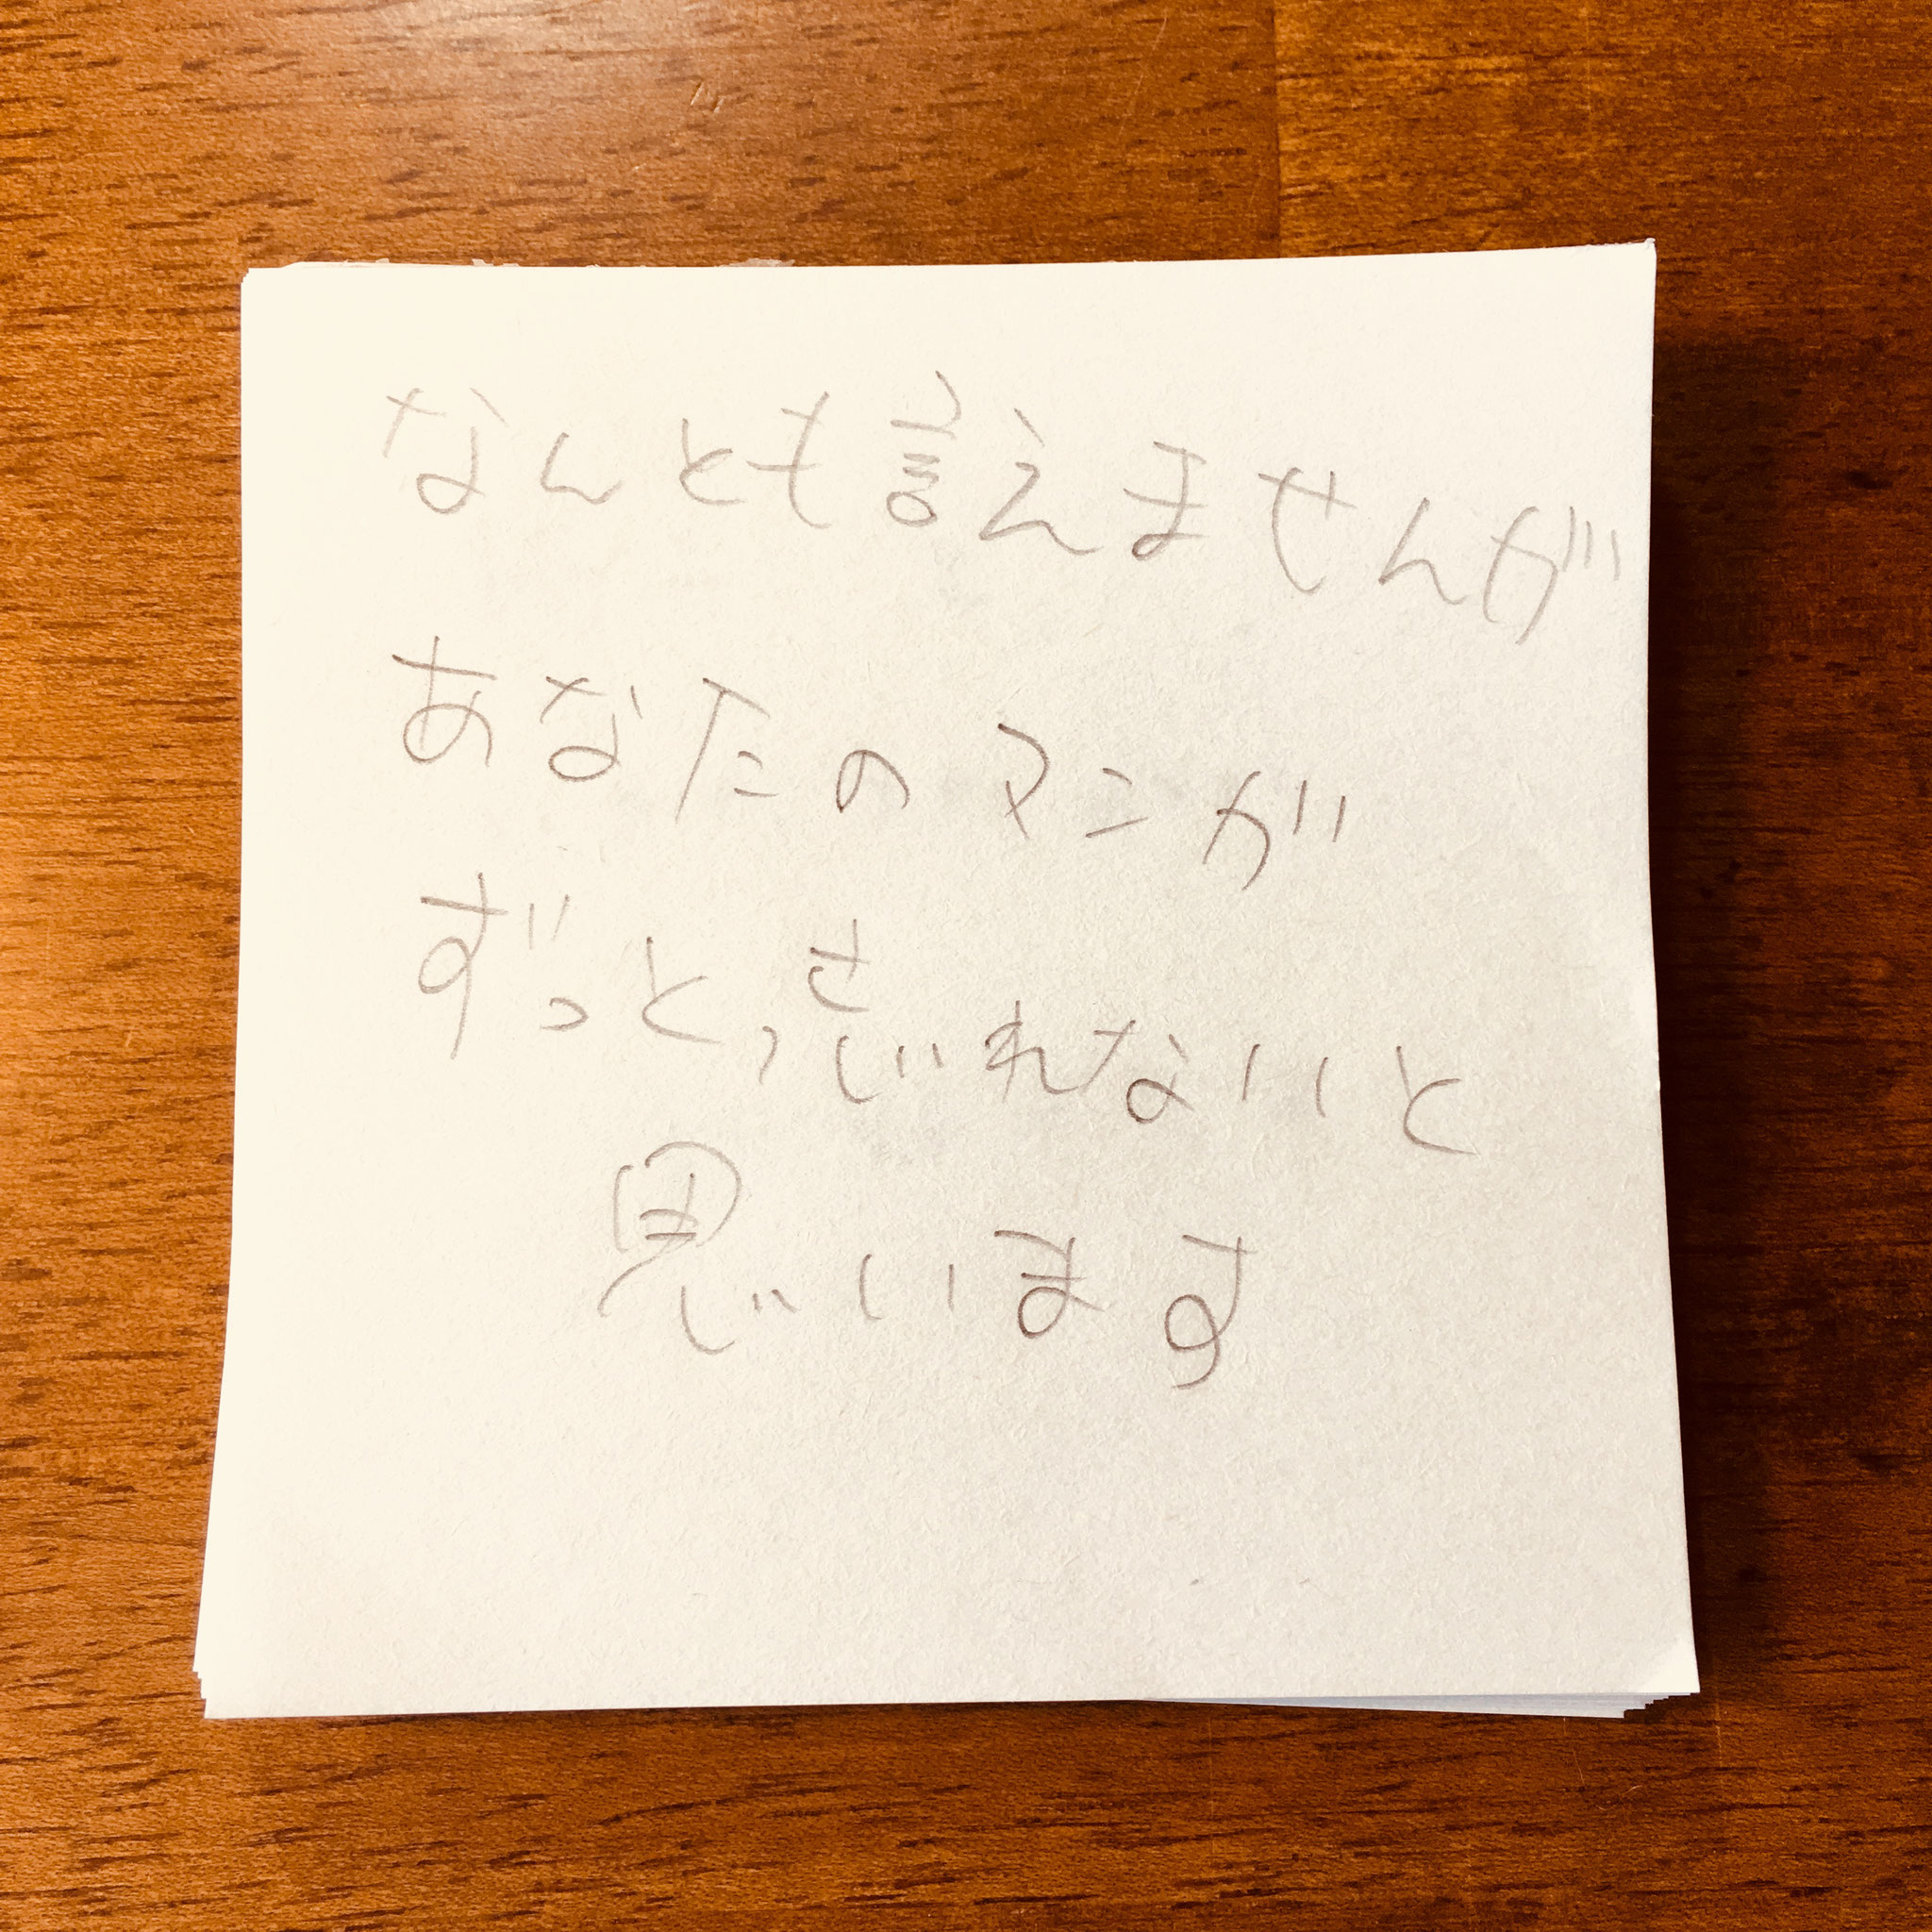 なんとも言えませんが
あなたのマンガ
ずっと、忘れないと
思います